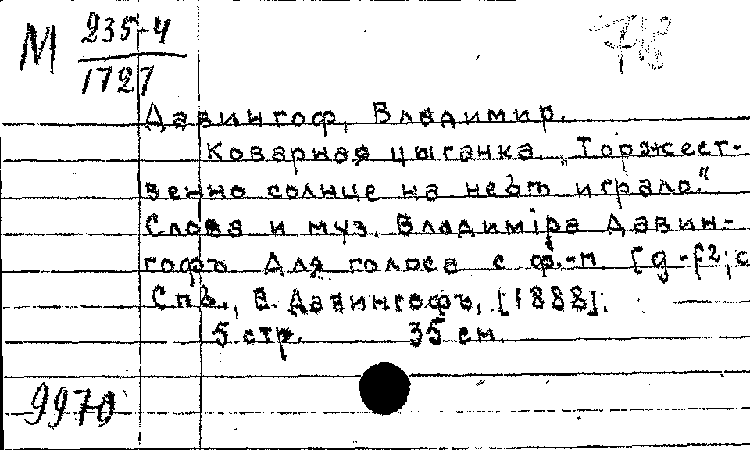 М 235-4
1727
Давингоф, Владимир.
Коварная цыганка. „Торжест-
венно солнце на небѣ играло."
Слова и муз. Владиміра Давин-
гофъ. Для голоса с ф.-п. [g-f2; c
Спб., В. Давингофъ, [1888].
5 стр. 35 см.
9970